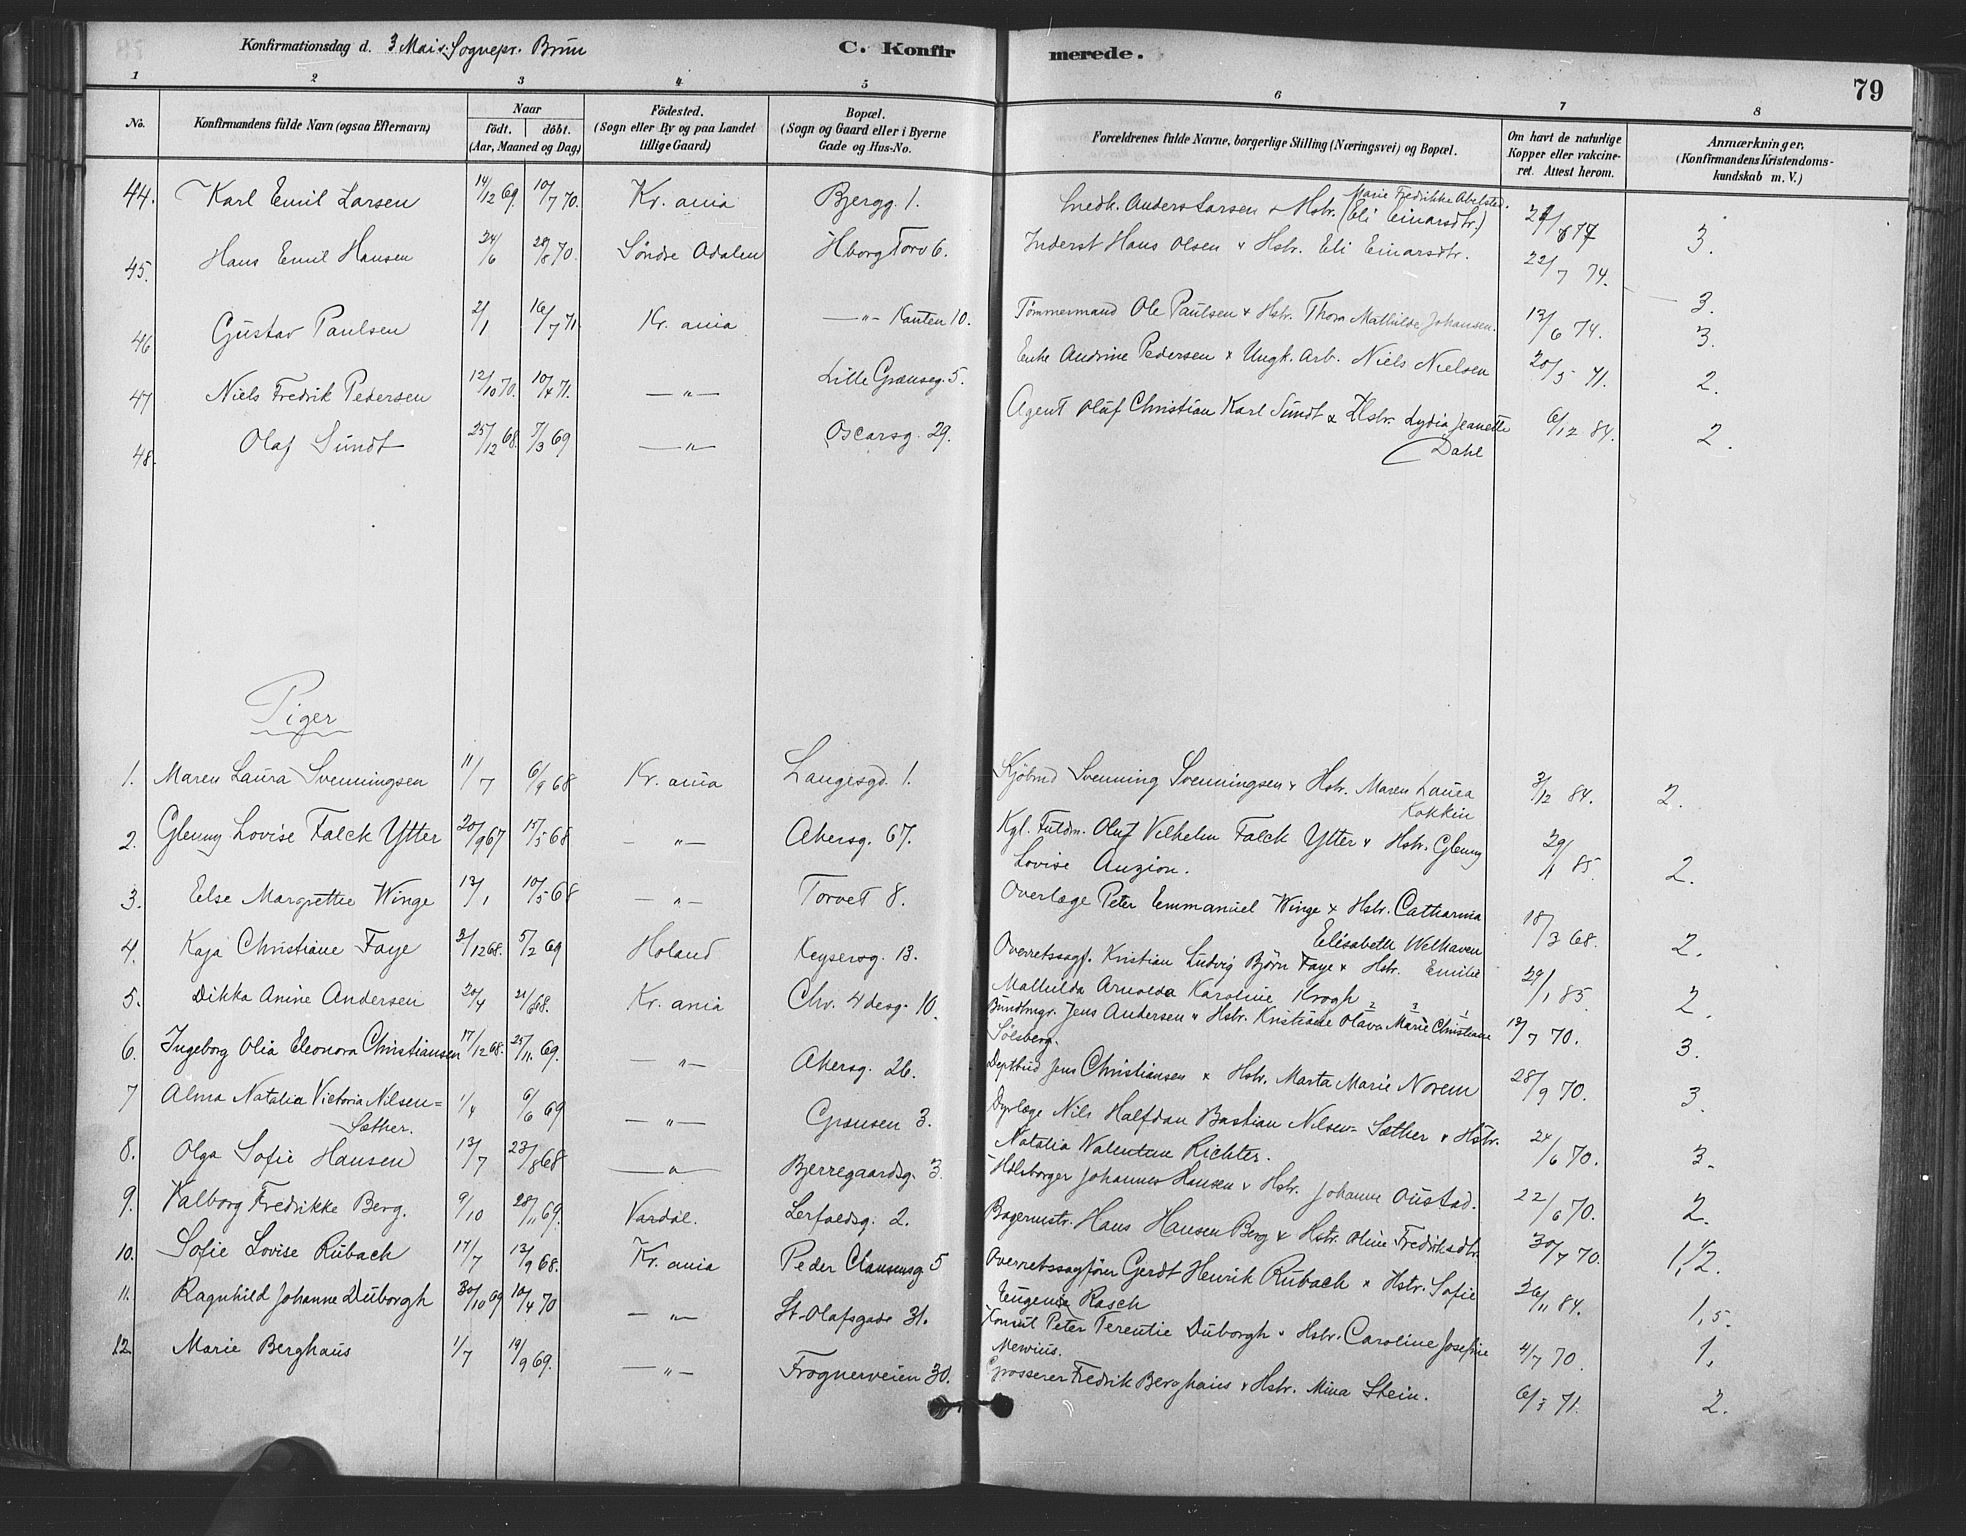 Konfirmationsdag d. 3 Mai. Sognepr. Brun
C. Konfirmerede.
79
1 2 3 4 5 6 7 8
No.
Konfirmandens fulde Navn (ogsaa Efternavn)
Naar
födt. döbt.
(Aar, Maaned og Dag)
Födested.
(Sogn eller By og paa Landet
tillige Gaard)
Bopæl.
(Sogn og Gaard eller i Byerne
Gade og Hus-No.
Forældrenes fulde Navne, borgerlige Stilling (Næringsvei) og Bopæl.
Om havt de naturlige
Kopper eller vakcine-
ret. Attest herom.
Anmærkninger,
(Konfirmandens Kristendoms-
kundskab m. V.)
44. Karl Emil Larsen 14/12 69 10/7 70. Kr. ania Bjergg. 1. Snedk. Anders Larsen & Hstr. (Eli Einarsdtr.) Marie Fredrikke Abelsted. 3.
45. Hans Emil Hansen 24/6 28/8 70. Søndre Odalen Hborg Torv 6. Inderst Hans Olsen & Hstr. Eli Einarsdtr. 22/7 74. 3.
46 Gustav Paulsen 2/1 16/7 71 Kr. ania —"— Kanten 10. Tømmermand Ole Paulsen & Hstr. Thora Mathilde Johansen. 13/6 74. 3.
47 Niels Fredrik Pedersen 12/10 70. 10/4 71. —"— Lille Grænseg. 5. Enke Andrine Pedersen & Ungk. Arb. Niels Nielsen 20/5 71. 2.
48. Olaf Sundt 25/12 68. 7/3 69 —"— Oscarsg. 29. Agent Oluf Christian Karl Sundt & Hstr. Lydia Jeanette
Dahl 6/12 84. 2.
Piger
1. Maren Laura Svenningsen 11/7 6/9 68 Kr. ania Langesgd. 1. Kjøbmd Svenning Svenningsen & Hstr. Maren Laura
Kokkin 3/12 84. 2.
2. Glenny Lovise Falck Ytter 20/9 67 15/5 68 —"— Akersg. 67. Kgl. Fuldm. Oluf Vilhelm Falck Ytter & Hstr. Glenny
Lovise Auzion. 29/1 85. 2.
3. Else Margrethe Winge 13/1 10/5 68 —"— Torvet 8. Overlæge Peter Emmanuel Winge & Hstr. Catharina
Elisabeth Welhaven 18/3 68. 2.
4. Kaja Christiane Faye 3/12 68. 5/2 69 Holand Keysersg. 13. Overretssagf. Kristian Ludvig Bjørn Faye & Hstr. Emilie
Mathilda Arnolda Karoline Krogh 29/1 85. 2.
5. Dikka Anine Andersen 20/4 21/6 68. Kr. ania Chr. 4desg. 10. Bundtmgr. Jens Andersen & Hstr. Kristiane Olava Marie Christiane
Solsberg. 19/7 70. 3.
6. Ingeborg Olia Eleonora Christiansen 17/12 68. 25/11 69. —"— Akersg. 26. Deptbud Jens Christiansen & Hstr. Marta Marie Norem 28/9 70. 3.
7 Alma Natalia Victoria Nilsen=
Sæther. 1/4 6/6 69 —"— Grænsen 3. Dyrlæge Nils Halfdan Bastian Nilsen=Sæther & Hstr.
Natalia Valentine Richter. 24/6 70. 3.
8. Olga Sofie Hansen 13/7 23/8 68 —"— Bjerregaardsg. 3. Johannes Hansen & Hstr. Johanne Oustad. 22/6 70. 2.
9. Valborg Fredrikke Berg. 9/10 28/11 69. Vardal. Lerfaldsg. 2. Bagermstr. Hans Hansen Berg & Hstr. Oline Fredriksdtr. 30/7 70.
10. Sofie Lovise Rubach 17/7 13/9 68. Kr. ania Peder Clausensg. 5 Overretssagfører Gerdt Henrik Rubach & Hstr. Sofie
Eugenie Rasch 26/11 84. 1,5.
11. Ragnhild Johanne Duborgh 30/10 69 10/4 70 —"— St. Olafsgade 31. Konsul Peter Terentie Duborgh & Hstr. Caroline Josefine
Mewius. 4/7 70. 1.
12. Marie Berghaus 1/7 19/9 69. —"— Frognerveien 30. Grosserer Fredrik Berghaus & Hstr. Mina Stein. 6/3 71. 2.